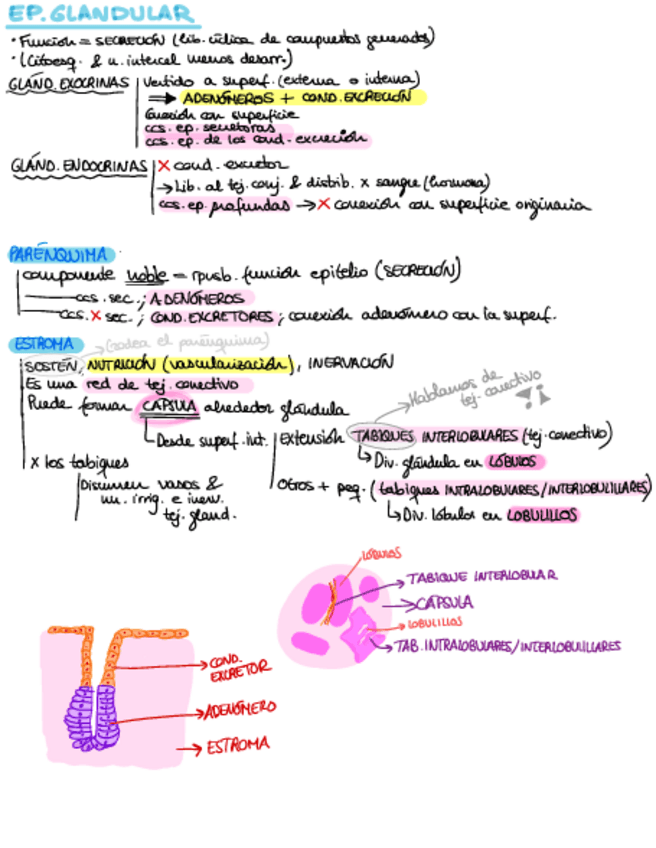 EP. GLANDULAR
· Función = SECRECIÓN (lib. cíclica de compuestos generados)
· (Citoesq. & u. intercel menos desarr.)
GLÁND. EXOCRINAS | Vertido a superf. (externa o interna)
⟹ ADENÓMEROS + COND. EXCRECIÓN
Conexión con superficie
ccs. ep. secretoras
ccs. ep. de los cond. excreción
GLÁND. ENDOCRINAS | X cond. excretor
→ Lib. al tej. conj. & distrib. x sangre (hormona)
ccs. ep. profundas → X conexión con superficie originaria
PARÉNQUIMA
componente noble = rpusb. función epitelio (SECRECIÓN)
ccs. sec.; ADENÓMEROS
ccs. X sec.; COND. EXCRETORES; conexión adenómero con la superf.
ESTROMA → (rodea el parénquima)
SOSTÉN, NUTRICIÓN (vascularización), INERVACIÓN
Es una red de tej. conectivo
Puede formar CÁPSULA alrededor glándula
Hablamos de tej. conectivo
Desde superf. int. | Extensión TABIQUES INTERLOBULARES (tej. conectivo)
↳ Div. glándula en LÓBULOS
Otros + peq. (tabiques INTRALOBULARES/INTERLOBULILLARES)
↳ Div. lóbulos en LOBULILLOS
X los tabiques
Discurren vasos &
nn. irrig. e inerv.
tej. gland.
LÓBULOS
TABIQUE INTERLOBULAR
CÁPSULA
LOBULILLOS
TAB. INTRALOBULARES/INTERLOBULILLARES
COND. EXCRETOR
ADENÓMERO
ESTROMA